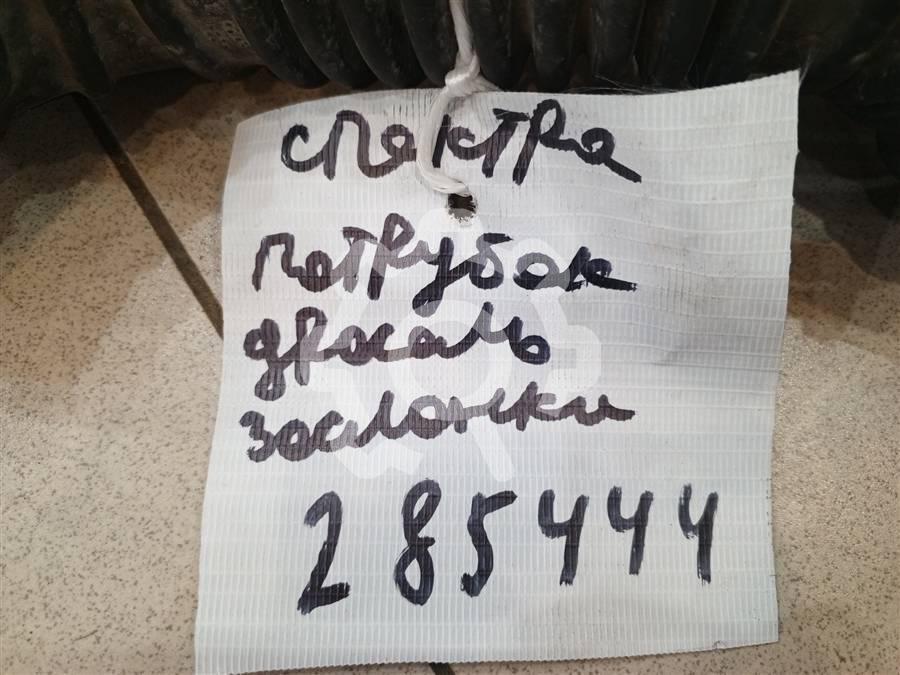 спектра
патрубок
дросаль
заслонки
285444